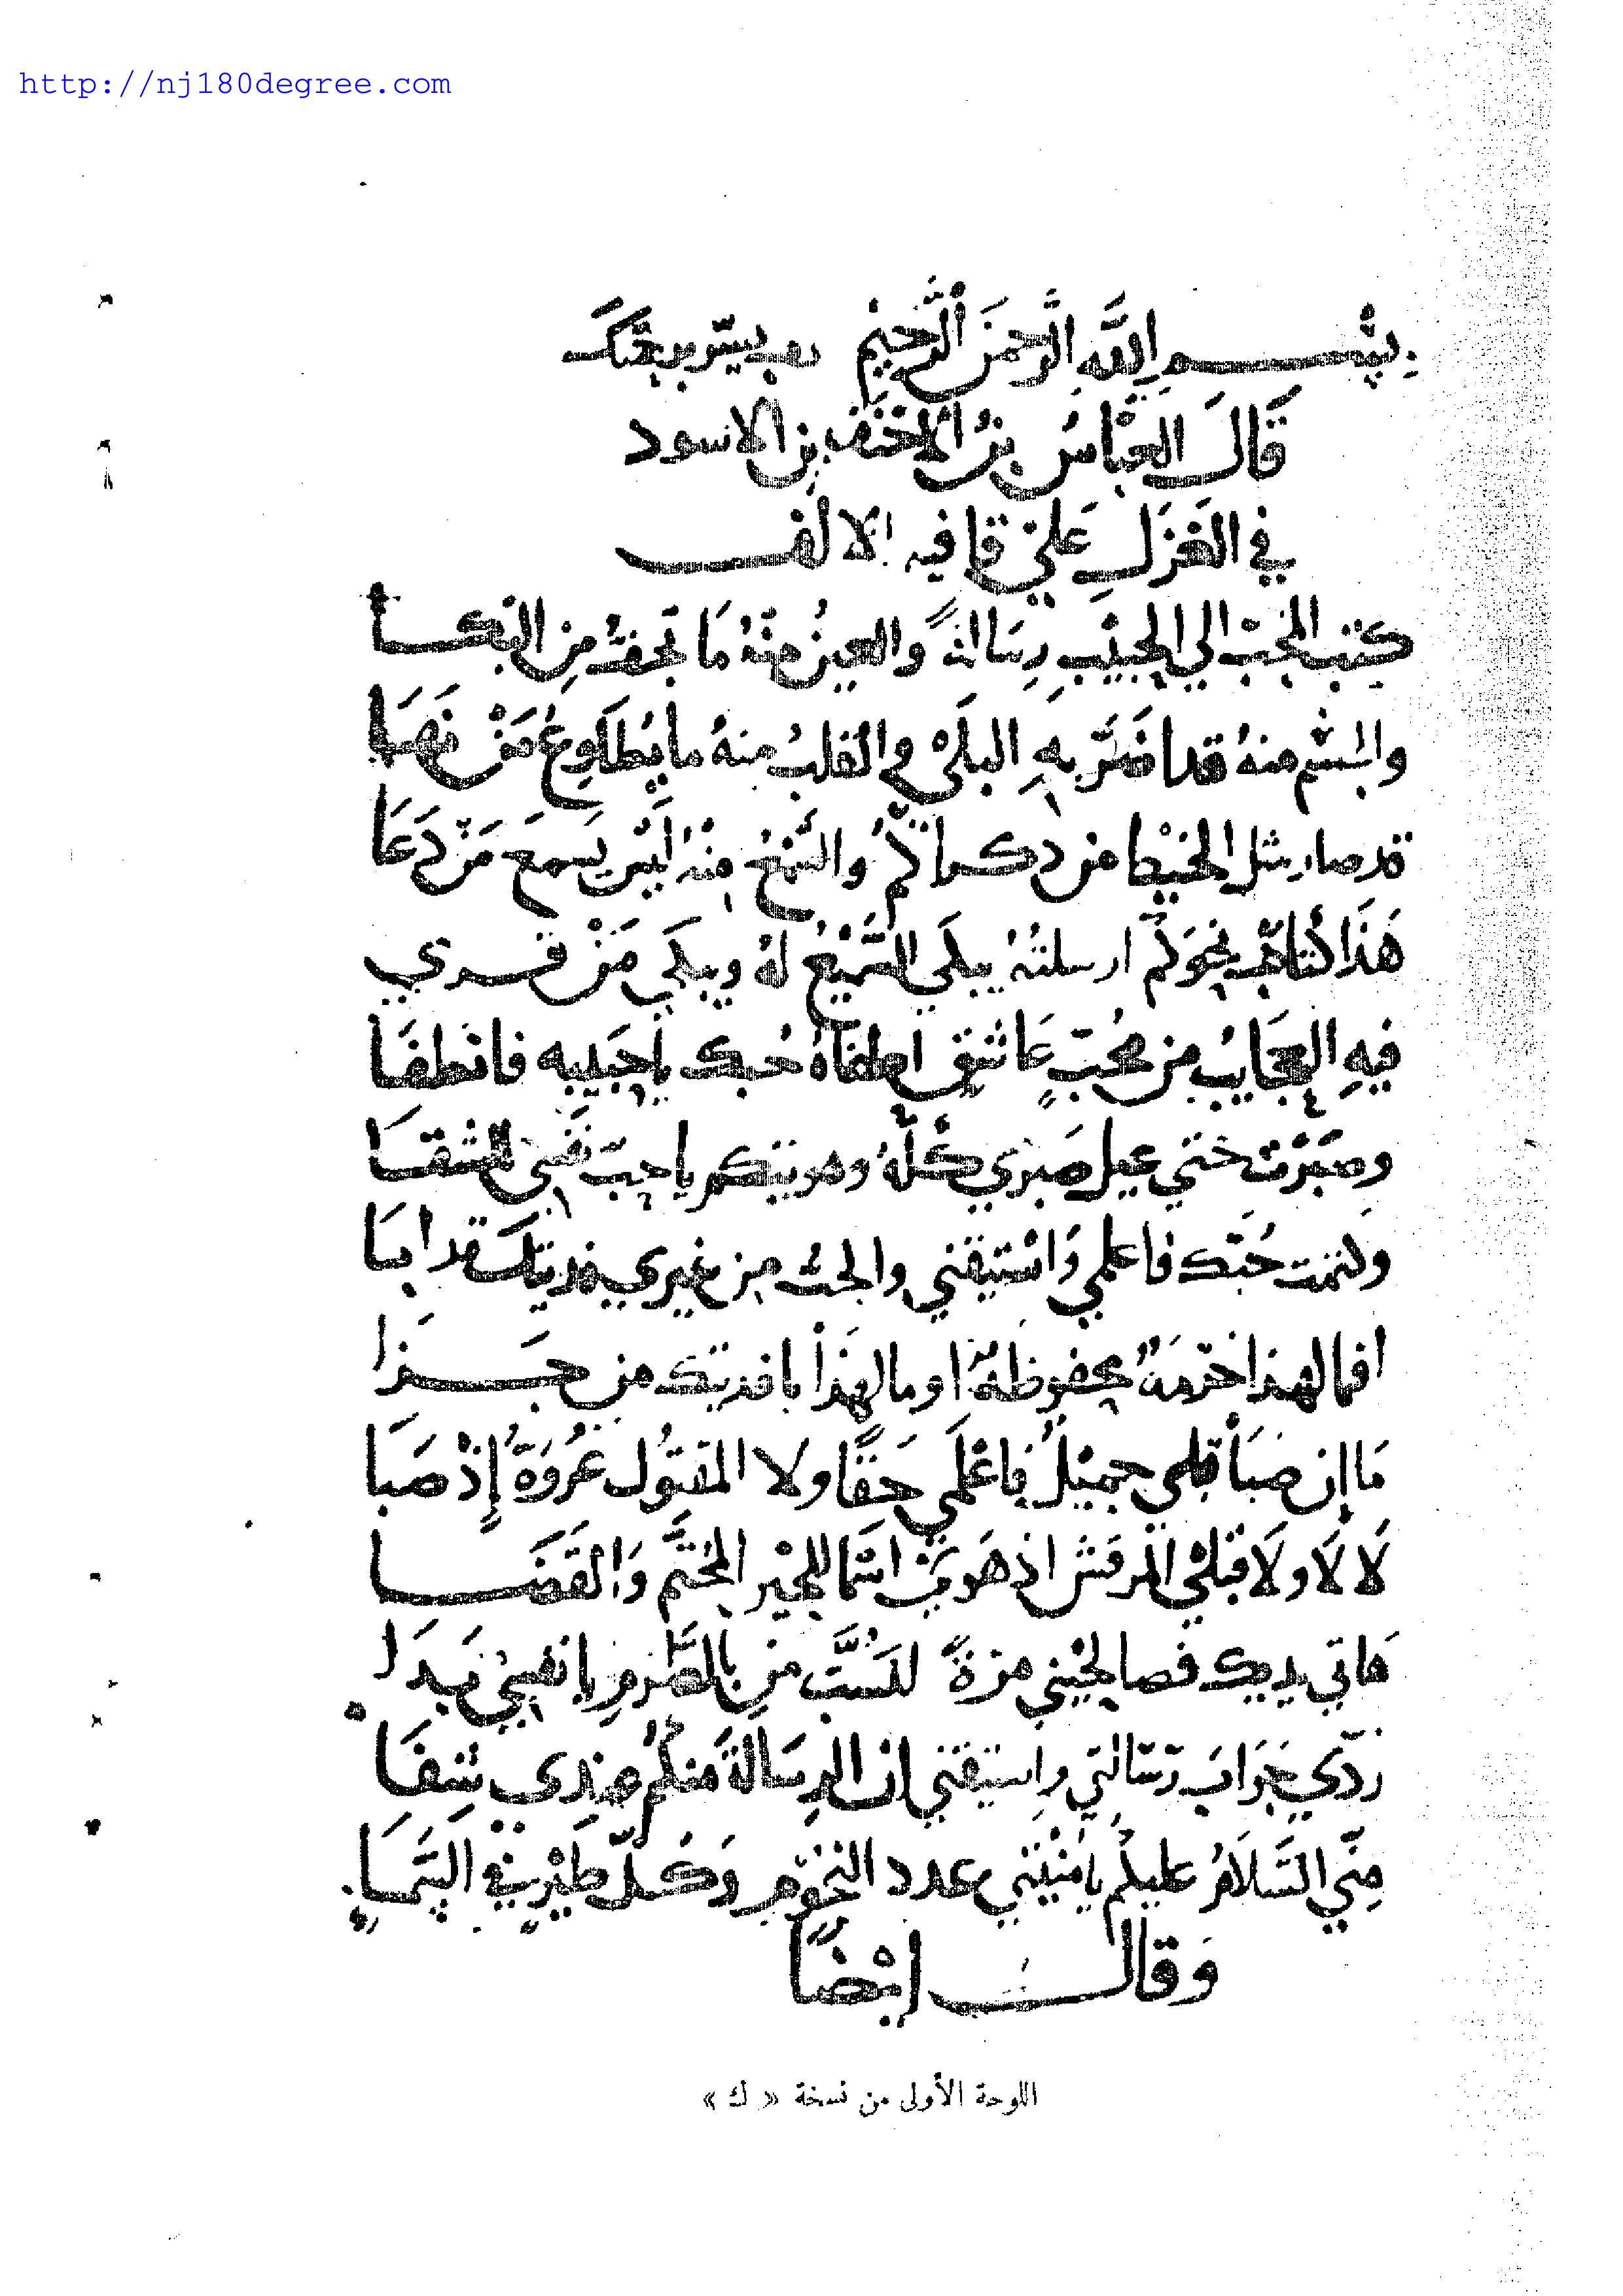 http://nj180degree.com
بِسْمِ اللَّهِ الرَّحمَنِ الرَّحِيْمِ رب يسّر برحمتك
قَالَ العَبَّاسُ بنُ الاَحْنَفِ بن الاسود
في الغَزَلِ عَلى قافيه الالف
كتب المحبّ الي الحبيْبِ رِسَالةً والعينُ منهُ مَا تجفُّ مِن البكا
والجسْم منهُ قد اضَرَّ بهِ البلَىْ والقلبُ منهُ ما يُطَاوِعُ مَنْ نَهَىَا
قد صار مثل الخيْط من دكراكُمُ والسَّمْعُ مِنْهُ لَيْسَ يَسمعَ مَنْ دَعَا
هَذَا كتابٌ نحوَكُمْ ارسلتُهُ يبكَي السَّمِيْعُ لهُ ويبكي مَنْ قري
فيهِ العجَايبُ من محُبٍّ عَاشقٍ اطفاهُ حُبك ياحبَيبه فانطفَا
وصَبَرْت حتي عيل صَبْري كُلّهُ وهويتكم ياحبّ نَفْسِىْ للشقَا
وكتمت حُبَّك فاعلمي وَاسْتيقني والحبُّ من غيري فديتك قد ابَا
افما لهذا حُرْمَةٌ محفوظَةٌ اوما لهذَا يافديتك من جَزَا
مَا إن صَبَا قبلي جميْلٌ فاعْلَمي حَقًا ولا المقتُول عُرْوَةُ إِذْ صَبَا
لَا لَا ولَا قبْلِيْ المرقشُ اذ هَوِيَ اسْمَا للحيْن المحُتَّمِ وَالقَضَا
هَاتي يديك فصالحيْني مرَةً للسْتُ من بالصَّرْمِ يانفسِيْ بَدَا
رُدّي جَوَابَ رسَالتي واستيقني ان الرِسَالة منكُم عِندِي شِفَا
مِنّي السَّلاَمُ عليكُم يامُنْيَتي عدد النجوم وَكُلّ طيْرٍ في السَّمَا
وَقالَ ايْضًا
اللوحة الأولى من نسخة « ك »